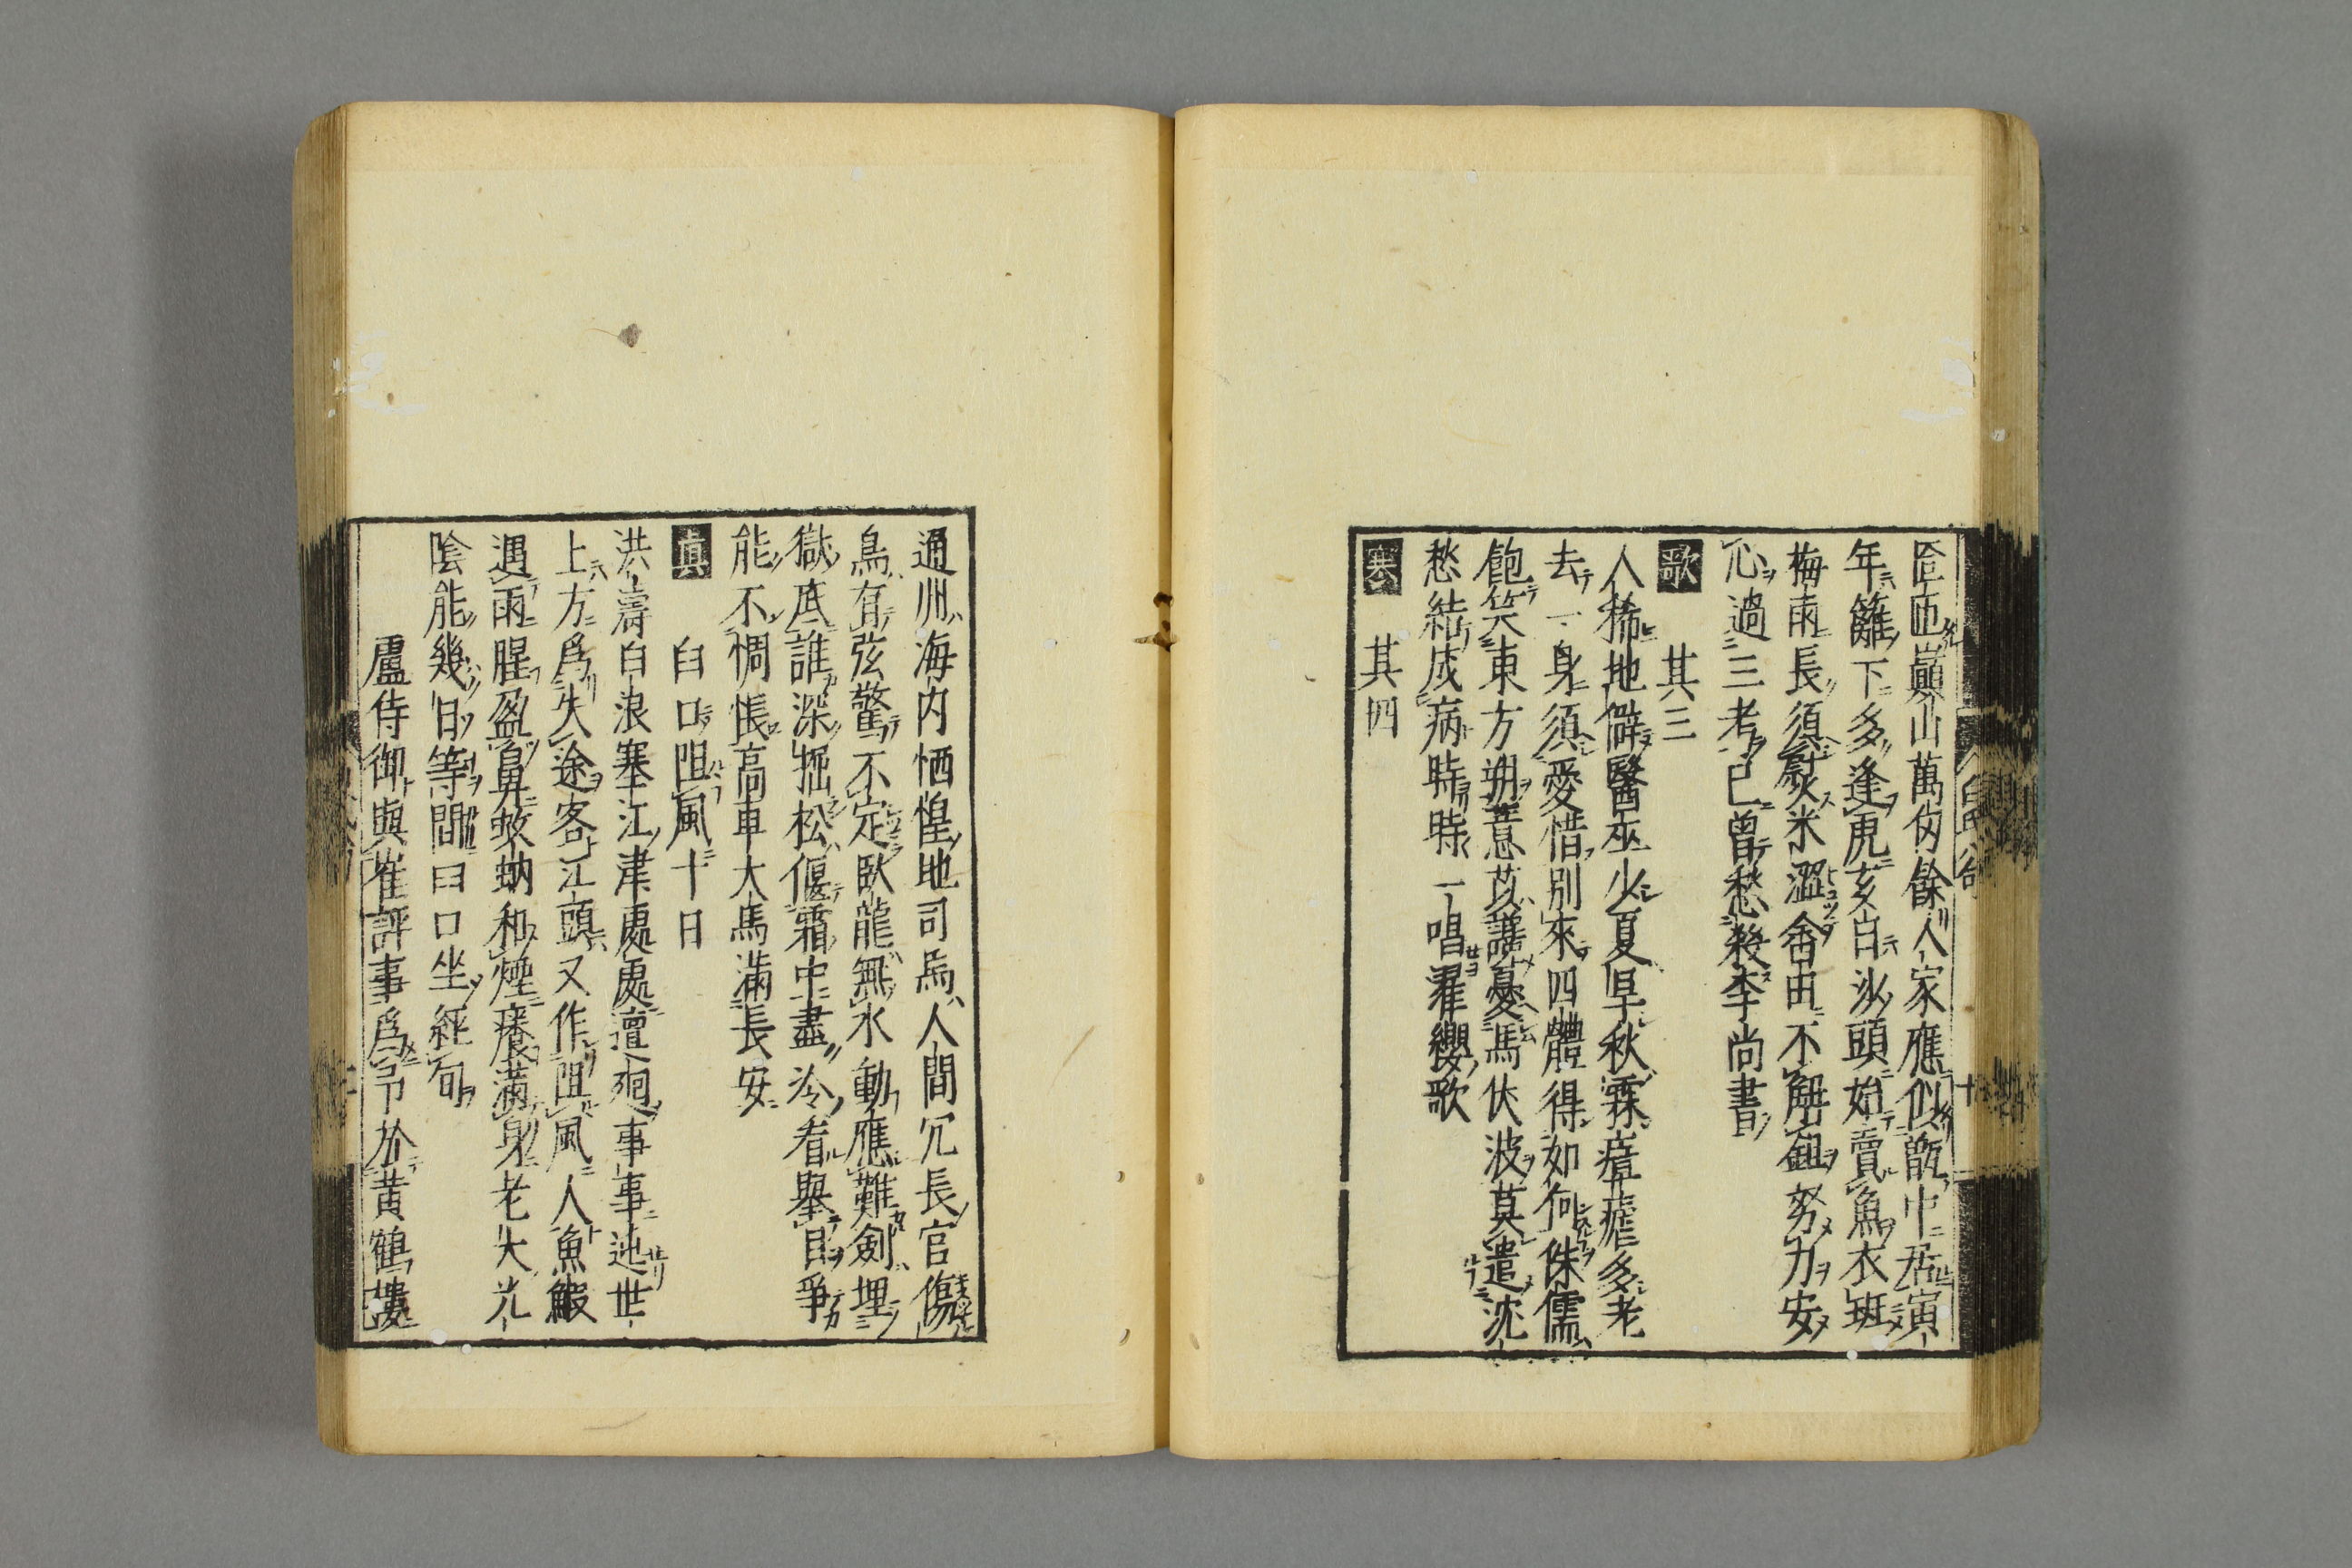 匼匝巔山萬仞餘人家應似甑中居寅
年籬下多逢虎亥日沙頭始賣魚衣斑
梅雨長須熨米澀畬田不解鉏努力安
心過三考已曾愁殺李尚書
歌　其三
人稀地僻醫巫少夏旱秋霖瘴瘧多老
去一身須愛惜別來四體得如何侏儒
飽笑東方朔薏苡讒憂馬伏波莫遣沈
愁結成病時時一唱濯纓歌
寒　其四
通州海内恓惶地司馬人間冗長官傷
鳥有弦驚不定臥龍無水動應難劍埋
獄底誰深掘松偃霜中盡冷看舉目爭
能不惆悵高車大馬滿長安
真　臼口阻風十日
洪濤白浪塞江津處處邅迴事事迍世
上方爲失途客江頭又作阻風人魚鰕
遇雨腥盈鼻蚊蚋和煙癢滿身老大光
陰能幾日等閒臼口坐經旬
盧侍御與崔評事爲予於黄鶴樓